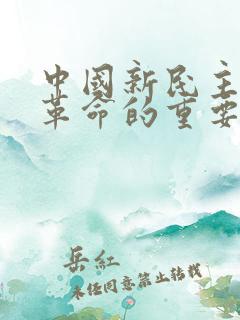 中國新民主
革命的重要
岳紅
未经同意禁止转载